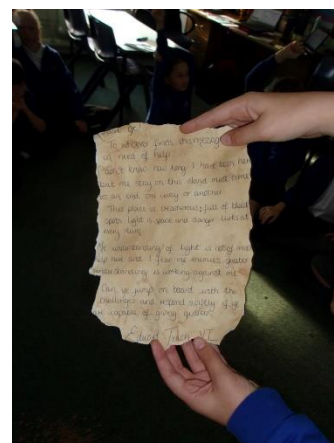 To whoever finds this,
in need of help.
I don't know how long I have been here
but my stay on this island must come
to an end one way or another.
This place is treacherous; full of black
spots, light is scarce and danger lurks at
every turn.
My understanding of light is not of much
use here and I fear my enemies greater
understanding is working against me.
Can ye jump on board with the
challenges and respond swiftly if ye
are capable of giving guidance.
Edward